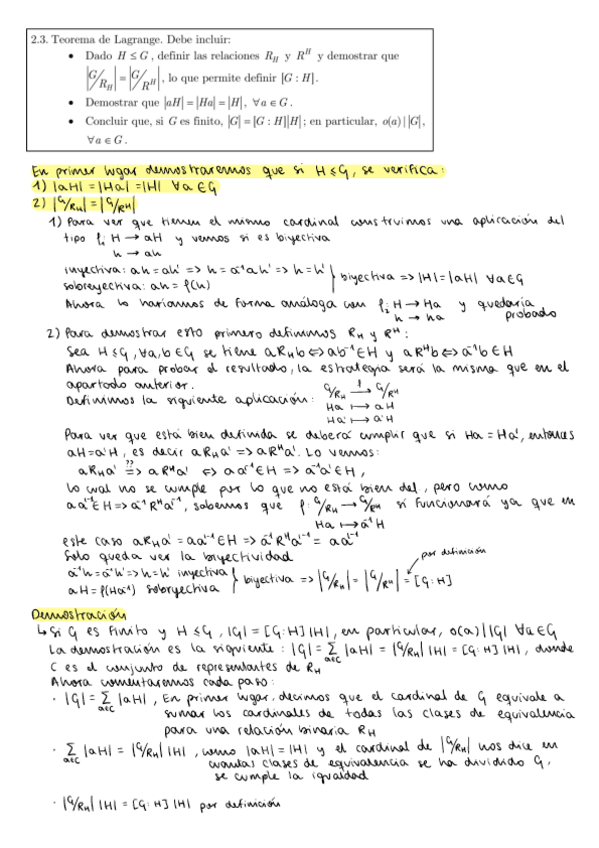 2.3. Teorema de Lagrange. Debe incluir:
• Dado H ≤ G , definir las relaciones R_H y R^H y demostrar que
|G/R_H| = |G/R^H| , lo que permite definir [G : H] .
• Demostrar que |aH| = |Ha| = |H| , ∀a ∈ G .
• Concluir que, si G es finito, |G| = [G : H]|H| ; en particular, o(a) | |G| ,
∀a ∈ G .
En primer lugar demostraremos que si H ≤ G, se verifica:
1) |aH| = |Ha| = |H| ∀a ∈ G
2) |G/R_H| = |G/R^H|
1) Para ver que tienen el mismo cardinal construimos una aplicación del
tipo f₁: H → aH y vemos si es biyectiva
h → ah
inyectiva: ah = ah' => h = a⁻¹ah' => h = h' } biyectiva => |H| = |aH| ∀a ∈ G
sobreyectiva: ah = f(h)
Ahora lo haríamos de forma análoga con f₂: H → Ha y quedaría
h → ha probado
2) Para demostrar esto primero definimos R_H y R^H :
Sea H ≤ G, ∀a, b ∈ G se tiene a R_H b <=> ab⁻¹ ∈ H y a R^H b <=> a⁻¹b ∈ H
Ahora para probar el resultado, la estrategia será la misma que en el
apartado anterior.
Definimos la siguiente aplicación: G/R_H →f G/R^H
Ha ↦ aH
Ha' ↦ a'H
Para ver que está bien definida se deberá cumplir que si Ha = Ha', entonces
aH = a'H, es decir a R_H a' => a R^H a'. Lo vemos:
a R_H a' =>?? a R^H a' <=> a a'⁻¹ ∈ H => a⁻¹a' ∈ H,
lo cual no se cumple por lo que no está bien def., pero como
a a'⁻¹ ∈ H => a⁻¹ R^H a'⁻¹, sabemos que f: G/R_H → G/R^H sí funcionará ya que en
Ha ↦ a⁻¹H
este caso a R_H a' = a a'⁻¹ ∈ H => a⁻¹ R^H a'⁻¹ = a a'⁻¹
Solo queda ver la biyectividad por definición
a⁻¹h = a⁻¹h' => h = h' inyectiva } biyectiva => |G/R_H| = |G/R^H| = [G:H]
aH = f(Ha⁻¹) sobreyectiva
Demostración
↳ Si G es finito y H ≤ G, |G| = [G:H] |H|, en particular, o(a) | |G| ∀a ∈ G
La demostración es la siguiente: |G| = Σ_{a∈C} |aH| = |G/R_H| |H| = [G:H] |H|, donde
C es el conjunto de representantes de R_H
Ahora comentaremos cada paso:
· |G| = Σ_{a∈C} |aH|, En primer lugar, decimos que el cardinal de G equivale a
sumar los cardinales de todas las clases de equivalencia
para una relación binaria R_H
· Σ_{a∈C} |aH| = |G/R_H| |H|, como |aH| = |H| y el cardinal de |G/R_H| nos dice en
cuantas clases de equivalencia se ha dividido G,
se cumple la igualdad
· |G/R_H| |H| = [G:H] |H| por definición